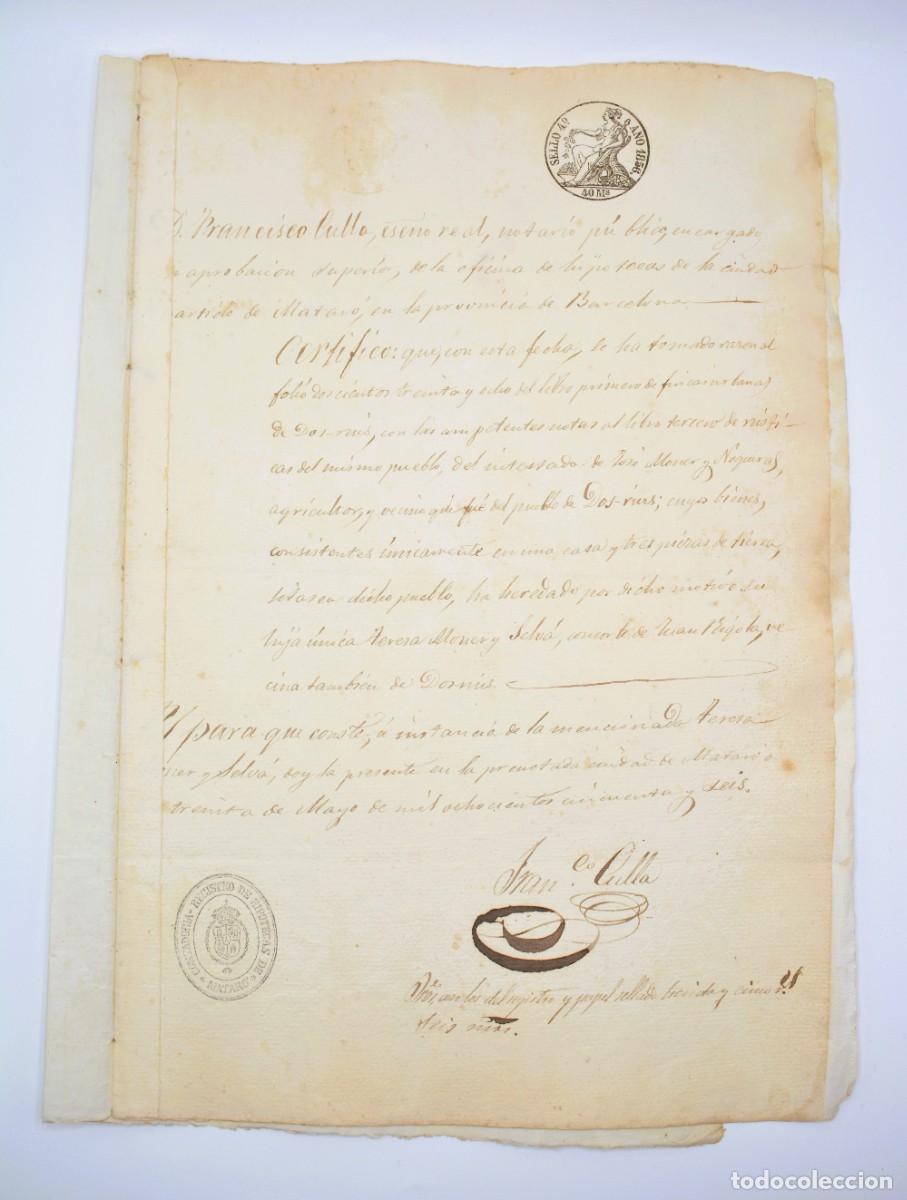 SELLO 4º AÑO 1856.
40 Ms
D. Francisco Culla, esño real, notario público, encargado
aprobacion superior, de la oficina de hipotecas de la ciudad
artido de Mataró, en la provincia de Barcelona
Certifico: que, con esta fecha, se ha tomado razon al
folio doscientos treinta y ocho del libro primero de fincas urbanas
de Dos-rius, con las competentes notas al libro tercero de rústi-
cas del mismo pueblo, del intestado de José Moner y Nogueras,
agricultor, y vecino que fué del pueblo de Dos-rius; cuyos bienes,
consistentes únicamente en una casa y tres piezas de tierra,
sitas en dicho pueblo, ha heredado por dicho motivo su
hija única Teresa Moner y Selvá, consorte de Juan Pigola, ve-
cina tambien de Dosrius.
Y para que conste, á instancia de la mencionada Teresa
ner y Selvá, doy la presente en la prenotada ciudad de Mataró á
treinta de Mayo de mil ochocientos cincuenta y seis.
Franco. Culla
CONTADURIA - REGISTRO DE HIPOTECAS DE MATARÓ
del registro y papel sellado treinta y cinco rs
seis mrs.
todocoleccion
todocoleccion.net